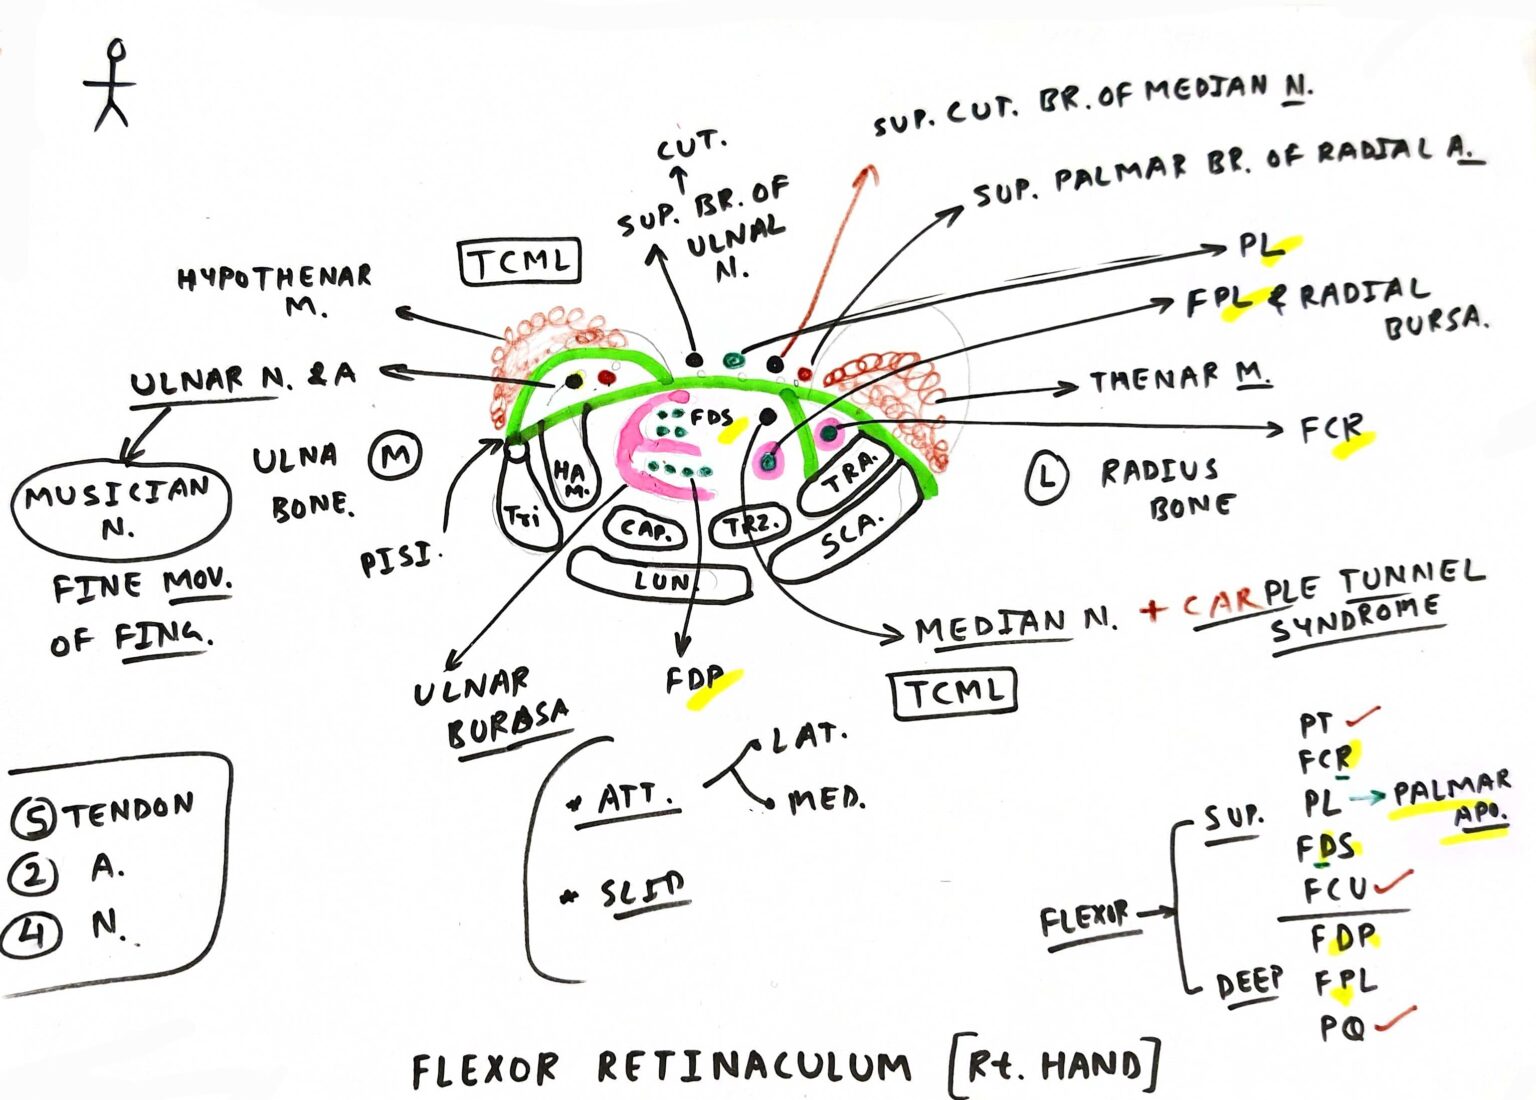 SUP. CUT. BR. OF MEDIAN N.
CUT.
SUP. BR. OF
ULNAL
N.
SUP. PALMAR BR. OF RADIAL A.
TCML
HYPOTHENAR
M.
PL
FPL & RADIAL
BURSA.
ULNAR N. & A
THENAR M.
FDS
FCR
ULNA
BONE.
M
L
RADIUS
BONE
MUSICIAN
N.
HA
M.
TRA.
Tri
CAP.
TRZ.
SCA.
PISI.
LUN.
FINE MOV.
OF FING.
MEDIAN N. + CARPLE TUNNEL
SYNDROME
ULNAR
BURASA
FDP
TCML
* ATT.
LAT.
MED.
* SLIP
5 TENDON
2 A.
4 N.
FLEXOR
SUP.
PT ✓
FCR
PL → PALMAR
APO.
FDS
FCU ✓
DEEP
FDP
FPL
PQ ✓
FLEXOR RETINACULUM [Rt. HAND]